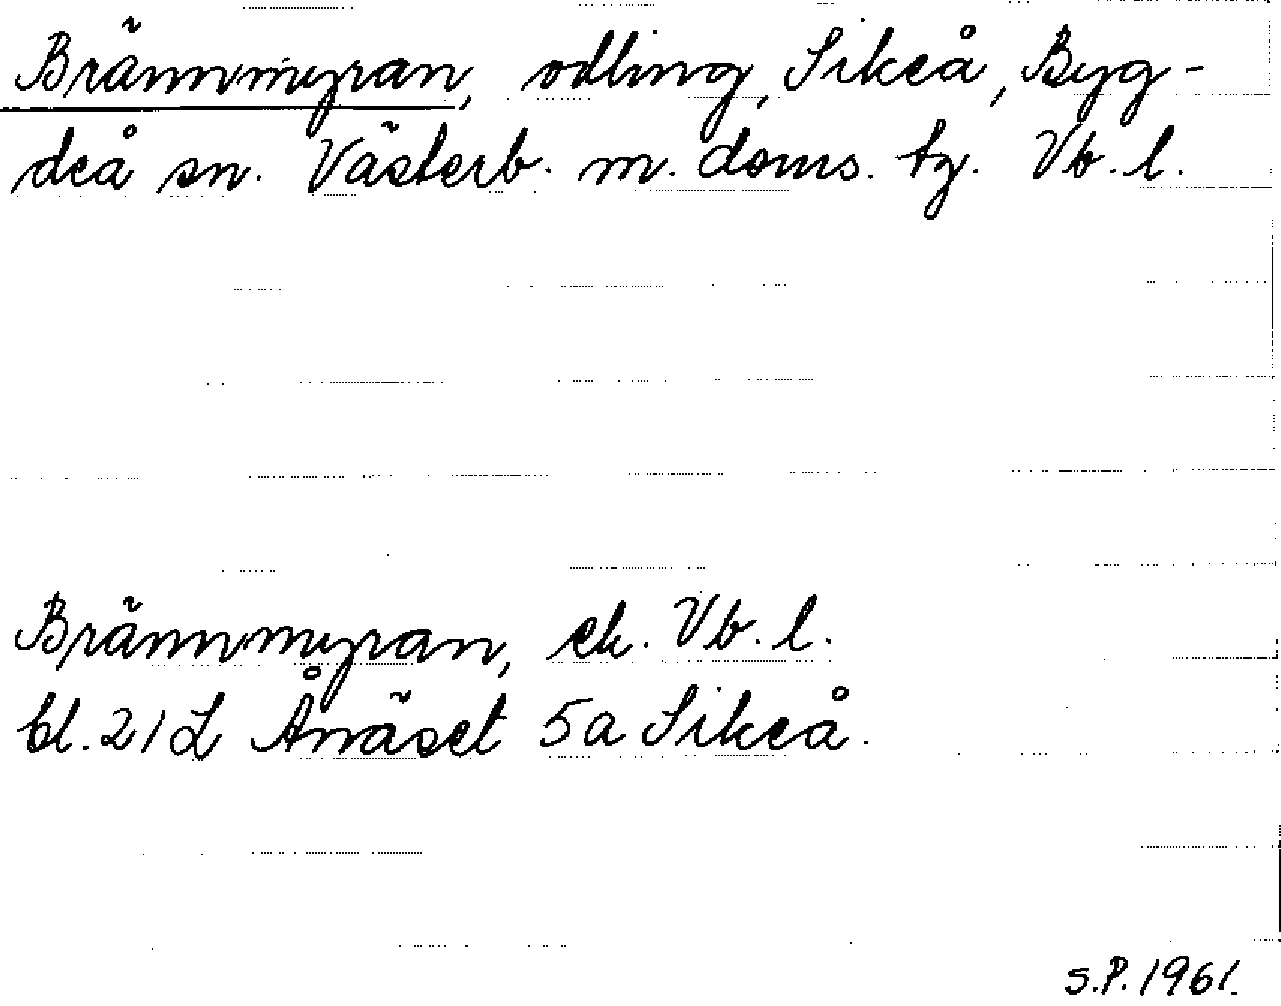 Brännmyran, odling, Sikeå, Byg-
deå sn. Västerb. m. doms. tg. Vb. l.
Brännmyran, ek. Vb. l.
bl. 21 L Ånäset 5a Sikeå.
S.P. 1961.